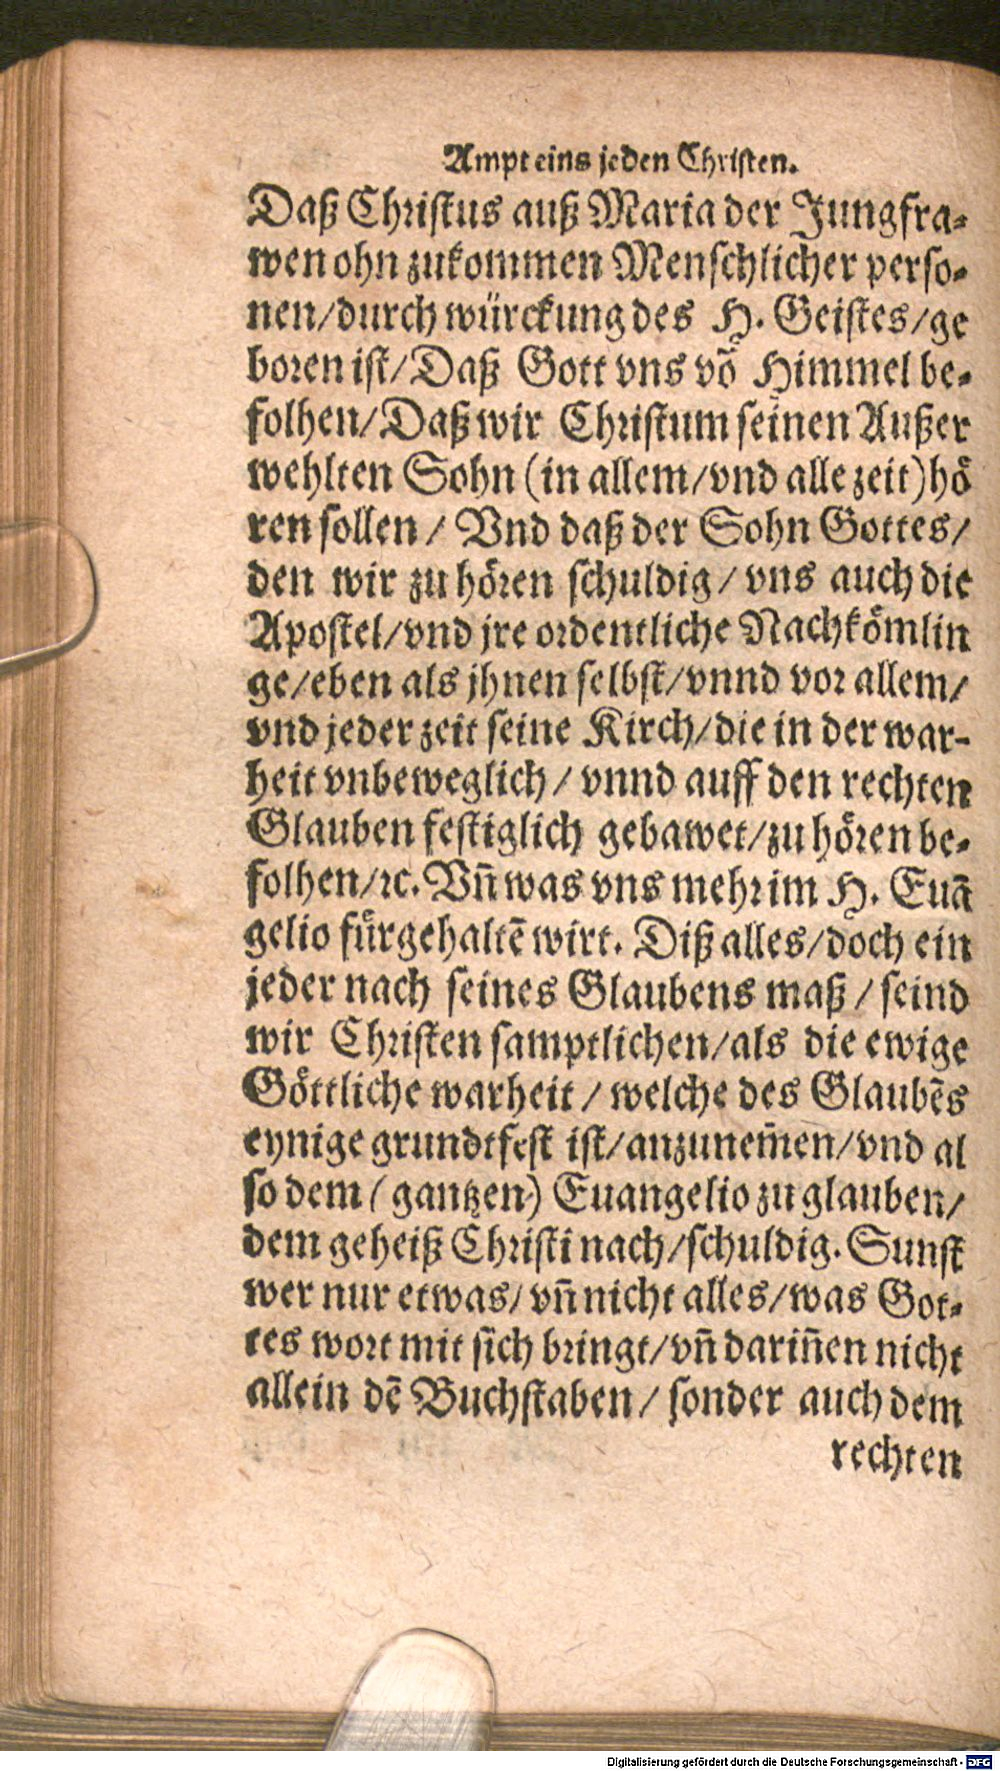 Ampt eins jeden Christen.
Daß Christus auß Maria der Jungfra⸗
wen ohn zukommen Menschlicher perso⸗
nen/durch würckung des H. Geistes/ge
boren ist/Daß Gott vns võ Himmel be⸗
folhen/Daß wir Christum seinen Außer
wehlten Sohn (in allem/vnd alle zeit) hö
ren sollen / Vnd daß der Sohn Gottes/
den wir zu hören schuldig / vns auch die
Apostel/vnd jre ordentliche Nachkömlin
ge/eben als jhnen selbst/vnnd vor allem/
vnd jeder zeit seine Kirch/die in der war-
heit vnbeweglich / vnnd auff den rechten
Glauben festiglich gebawet/zu hören be⸗
folhen/ꝛc. Vñ was vns mehr im H. Euā
gelio fürgehaltē wirt. Diß alles/doch ein
jeder nach seines Glaubens maß / seind
wir Christen samptlichen/als die ewige
Göttliche warheit / welche des Glaubēs
eynige grundtfest ist/anzunem̃en/vnd al
so dem (gantzen) Euangelio zu glauben/
dem geheiß Christi nach/schuldig. Sunst
wer nur etwas/vñ nicht alles/was Got⸗
tes wort mit sich bringt/vñ dariñen nicht
allein dē Buchstaben / sonder auch dem
rechten
Digitalisierung gefördert durch die Deutsche Forschungsgemeinschaft - DFG